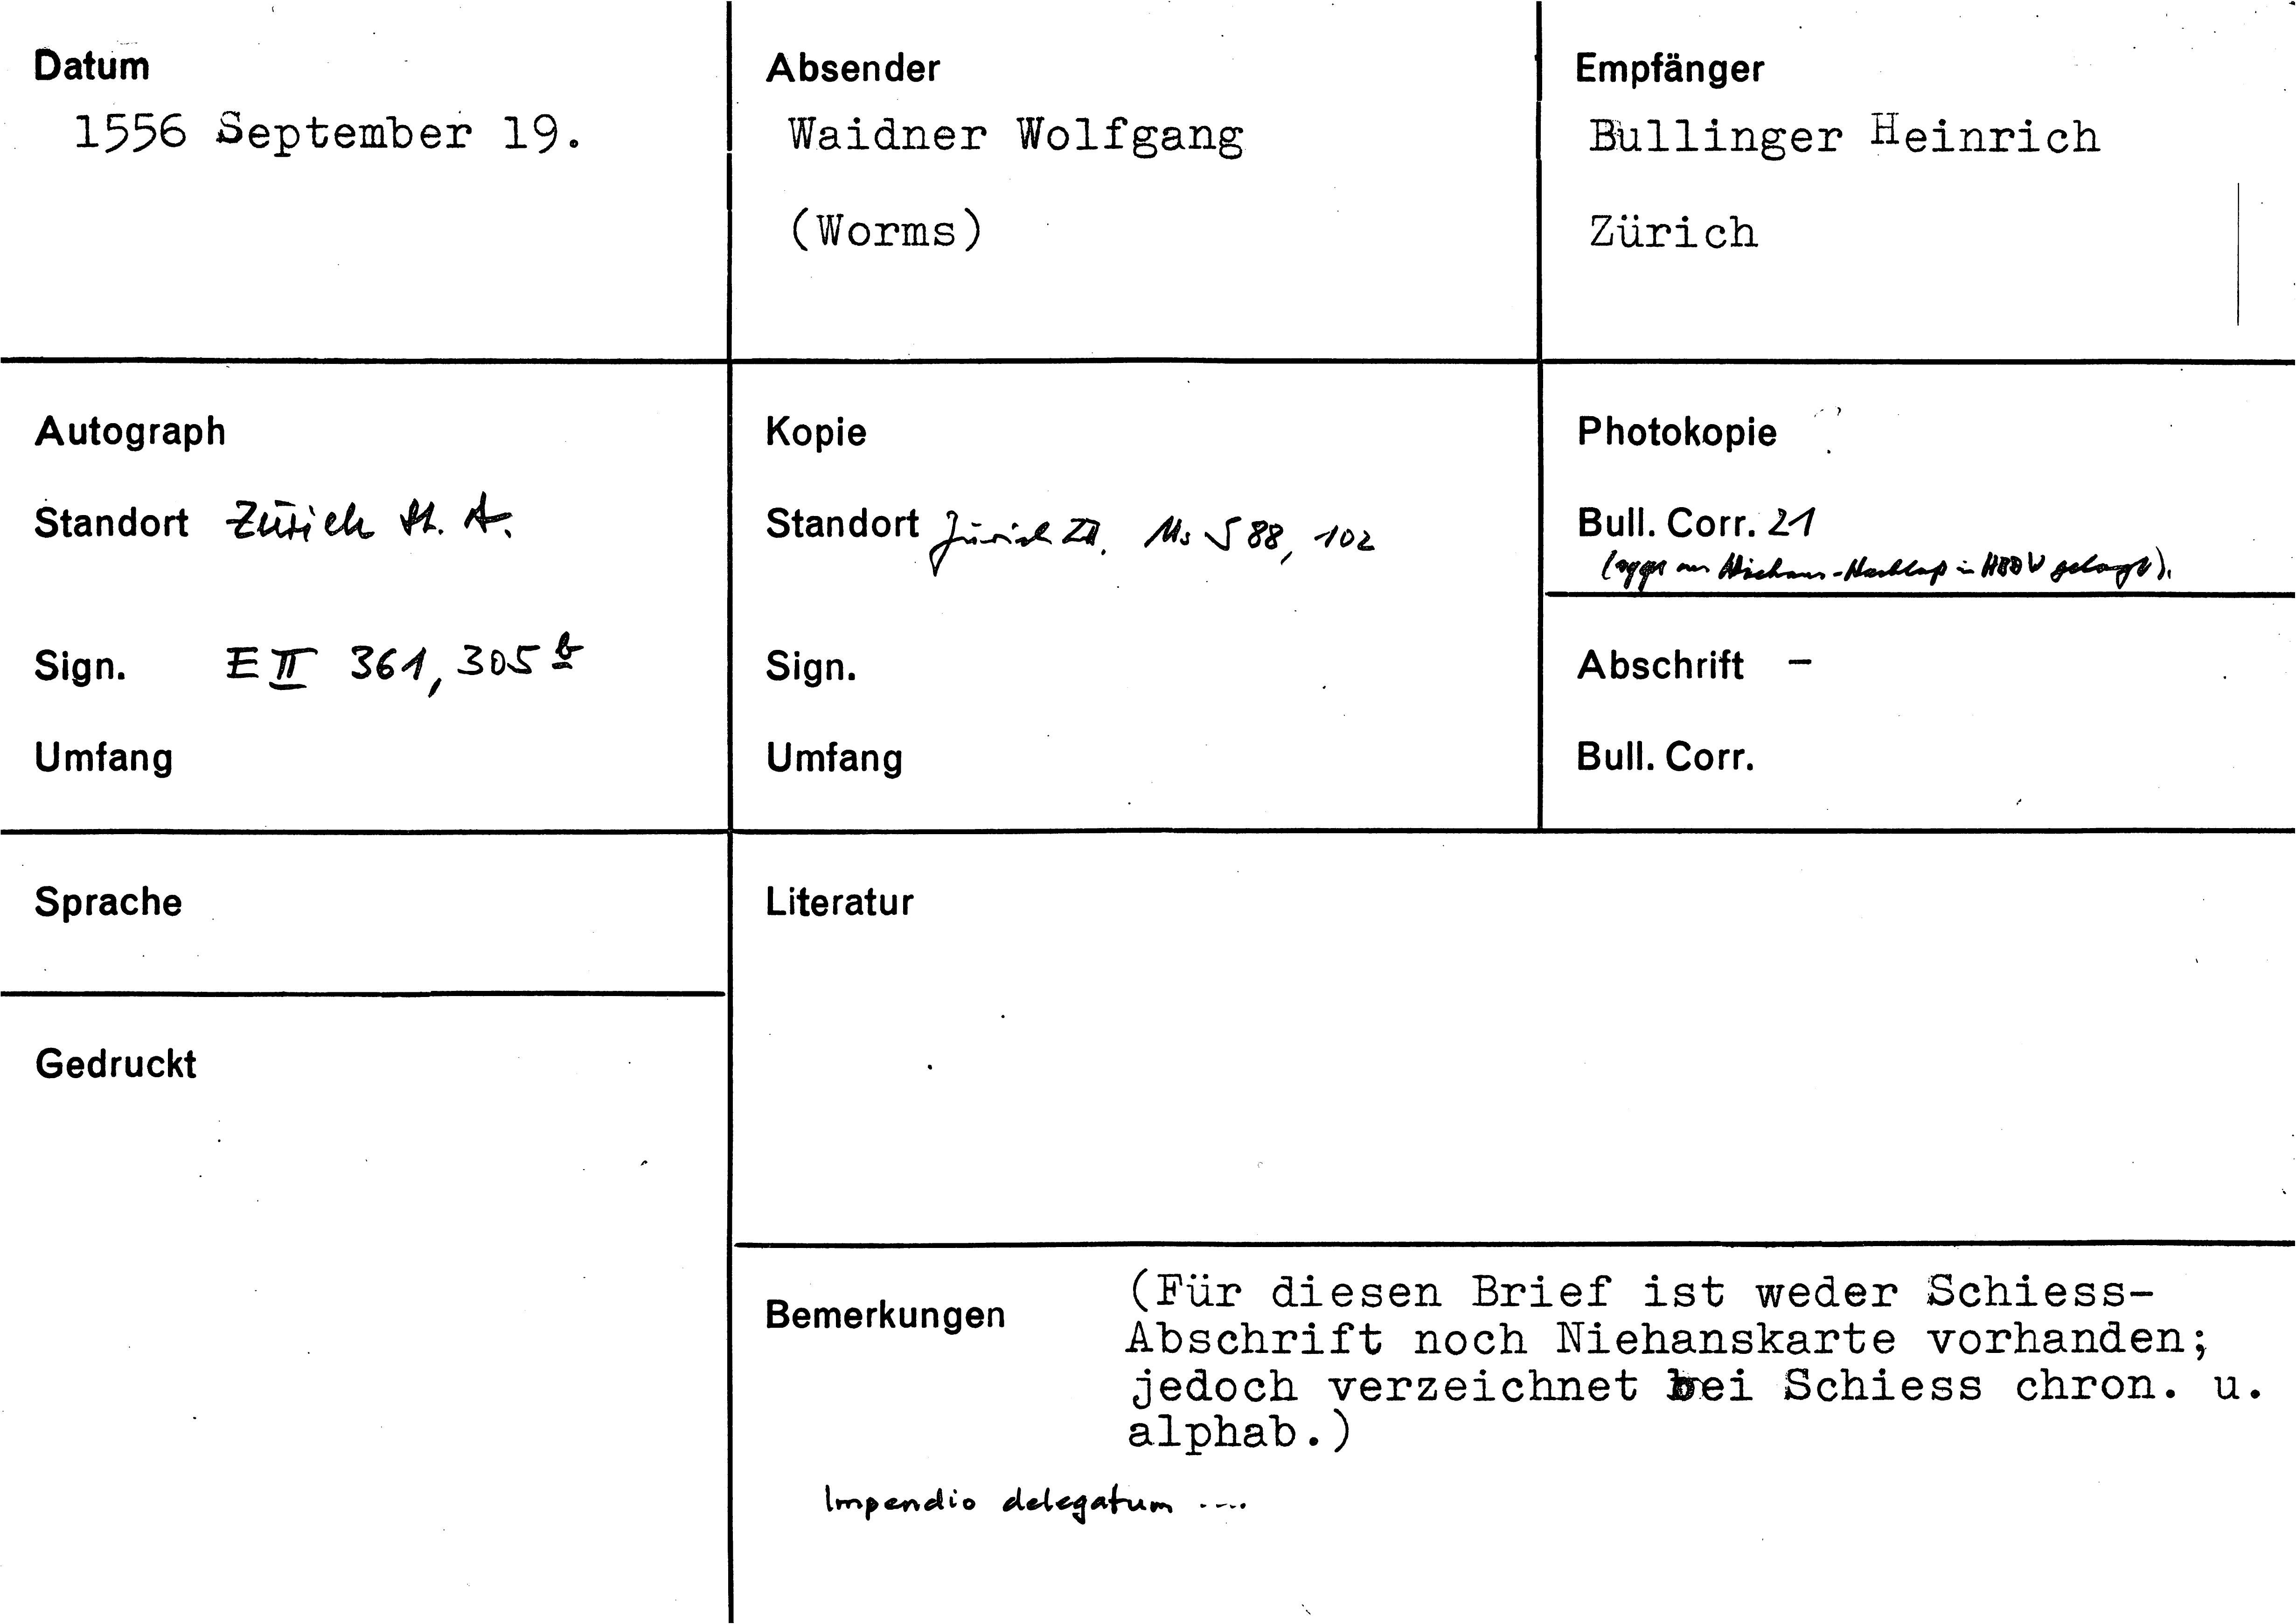 Datum
1556 September 19.
Absender
Waidner Wolfgang
(Worms)
Empfänger
Bullinger Heinrich
Zürich
Autograph
Standort Zürich St. A.
Sign. E II 361, 305 b
Umfang
Kopie
Standort Zürich ZB, Ms S 88, 102
Sign.
Umfang
Photokopie
Bull. Corr. 21
-Nachlaß in HBBW gelangt).
Abschrift –
Bull. Corr.
Sprache
Gedruckt
Literatur
Bemerkungen
(Für diesen Brief ist weder Schiess-
Abschrift noch Niehanskarte vorhanden;
jedoch verzeichnet bei Schiess chron. u.
alphab.)
Impendio delegatum ....